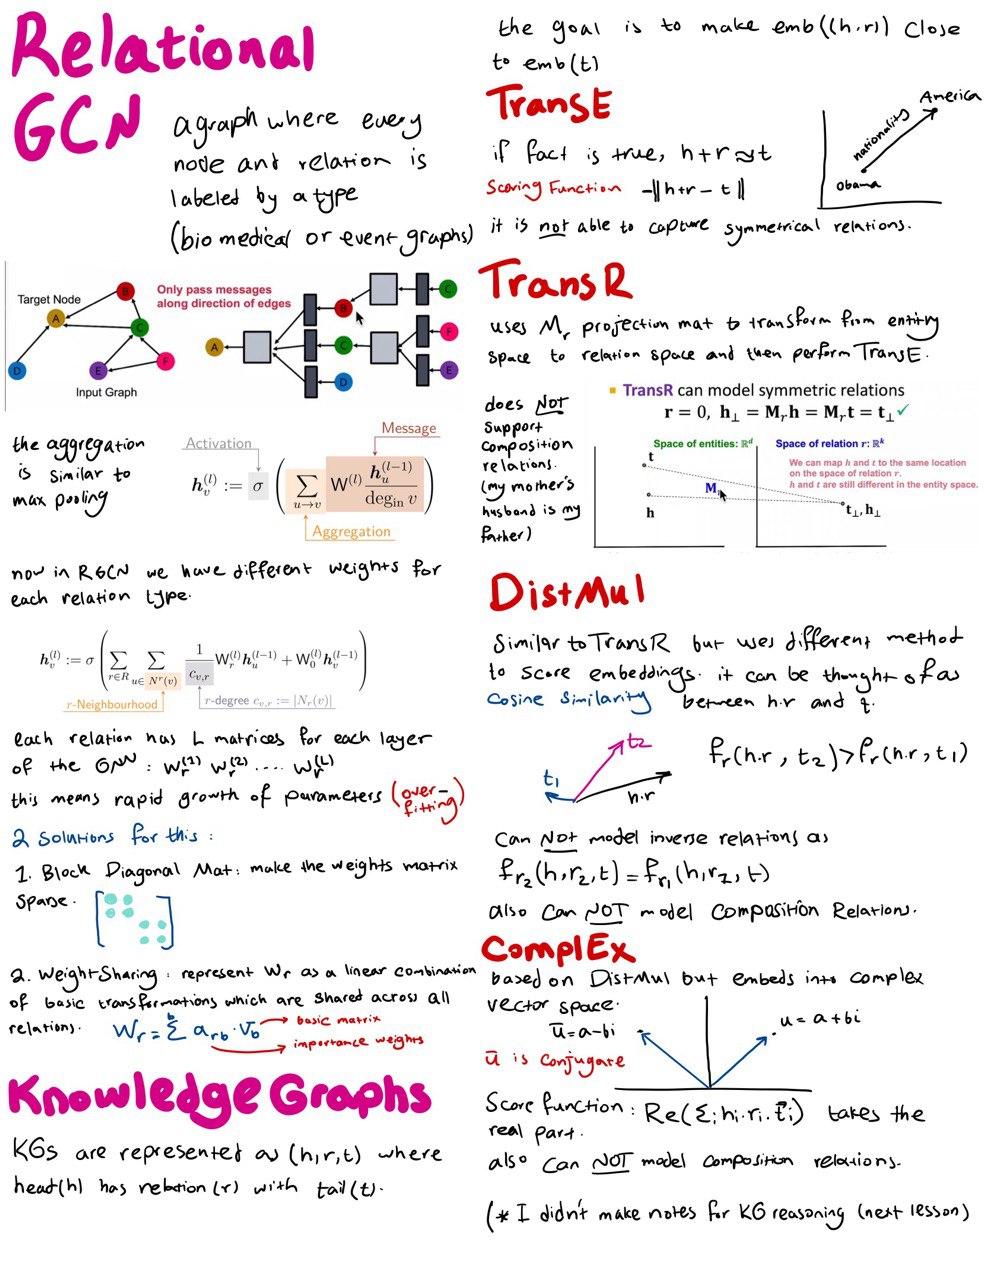 Relational
GCN
a graph where every
node and relation is
labeled by a type
(bio medical or event graphs)
Target Node
Only pass messages
along direction of edges
A
B
C
D
E
F
Input Graph
A
B
C
D
C
F
E
the aggregation
is similar to
max pooling
Activation
Message
h_v^(l) := σ ( Σ_{u→v} W^(l) h_u^(l-1) / deg_in v )
Aggregation
now in RGCN we have different weights for
each relation type.
h_v^(l) := σ ( Σ_{r∈R} Σ_{u∈N^r(v)} 1/c_{v,r} W_r^(l) h_u^(l-1) + W_0^(l) h_v^(l-1) )
r-Neighbourhood
r-degree c_{v,r} := |N_r(v)|
each relation has L matrices for each layer
of the GNN : W_r^(1) W_r^(2) .... W_r^(L)
this means rapid growth of parameters (over-
fitting)
2 Solutions for this :
1. Block Diagonal Mat: make the weights matrix
sparse.
2. Weight Sharing : represent Wr as a linear combination
of basic transformations which are shared across all
relations.
W_r = Σ^b a_rb · V_b
basic matrix
importance weights
Knowledge Graphs
KGs are represented as (h,r,t) where
head(h) has relation(r) with tail(t).
the goal is to make emb((h,r)) close
to emb(t)
TransE
if fact is true, h+r ≈ t
Scoring Function -||h+r-t||
America
nationality
Obama
it is not able to capture symmetrical relations.
TransR
uses M_r projection mat to transform from entity
space to relation space and then perform TransE.
does NOT
support
composition
relations.
(my mother's
husband is my
father)
TransR can model symmetric relations
r = 0, h⊥ = M_r h = M_r t = t⊥ ✓
Space of entities: ℝ^d
Space of relation r: ℝ^k
We can map h and t to the same location
on the space of relation r.
h and t are still different in the entity space.
t
M_r
h
t⊥, h⊥
DistMul
Similar to TransR but uses different method
to score embeddings. it can be thought of as
Cosine Similarity between h.r and t.
t2
t1
h.r
f_r(h.r, t2) > f_r(h.r, t1)
Can NOT model inverse relations as
f_r2(h,r2,t) = f_r1(h,r2,t)
also Can NOT model Composition Relations.
ComplEx
based on DistMul but embeds into complex
vector space.
ū = a-bi
u = a+bi
ū is conjugate
Score function : Re(Σi hi.ri.t̄i) takes the
real part.
also Can NOT model composition relations.
(* I didn't make notes for KG reasoning (next lesson)